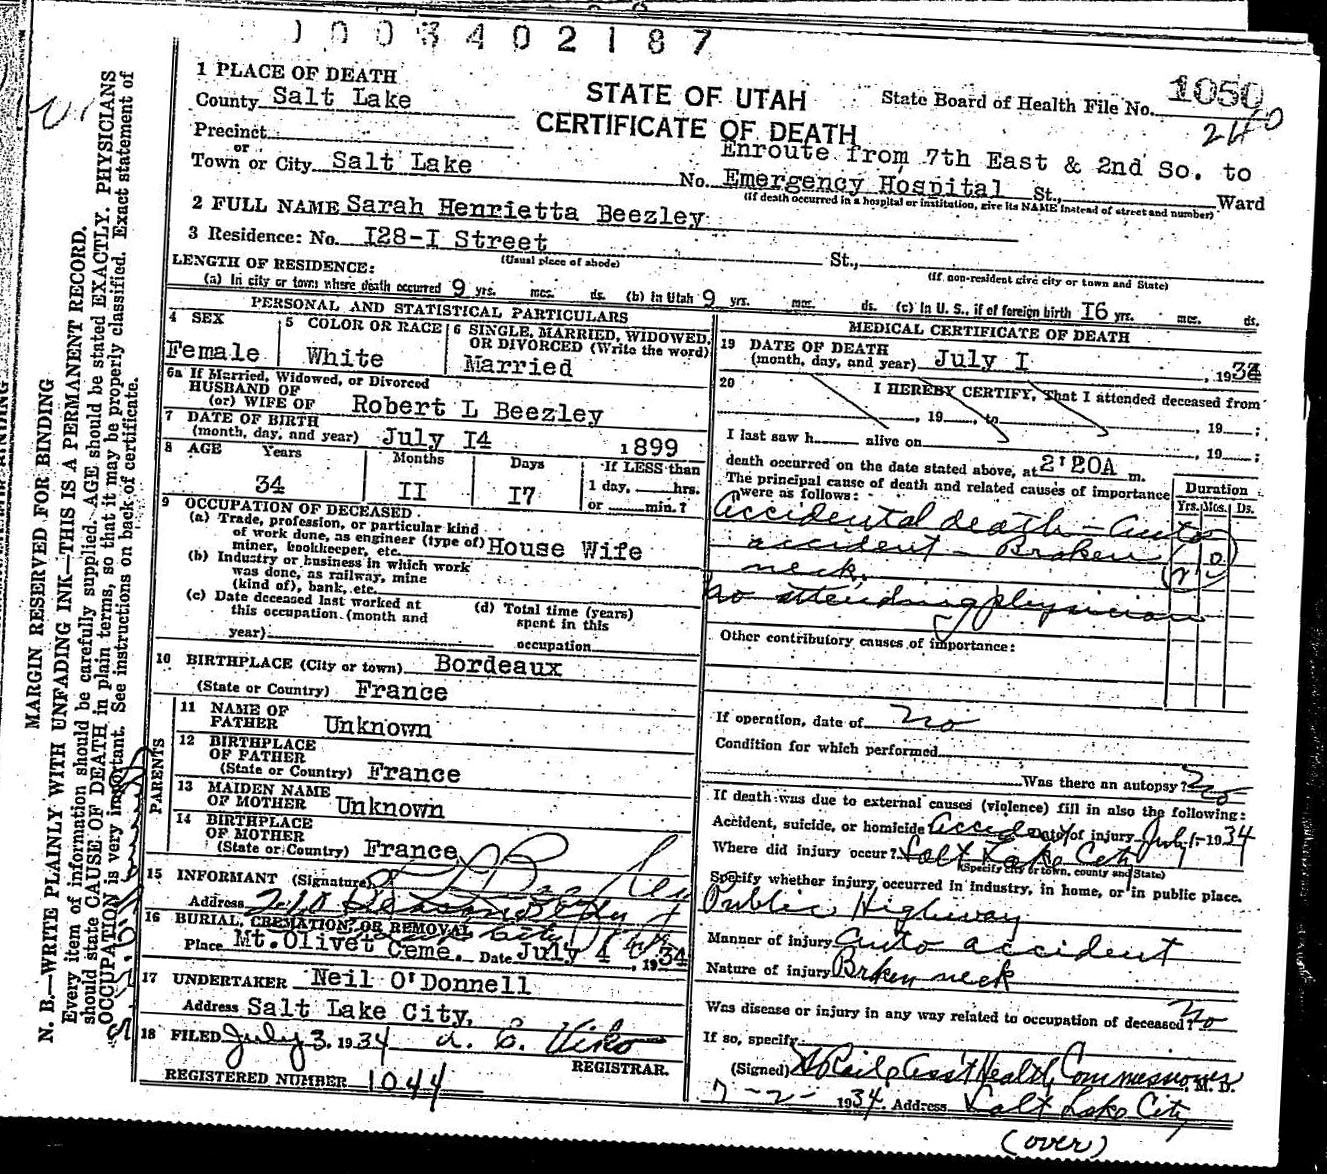 1003402187
1 PLACE OF DEATH
County Salt Lake
STATE OF UTAH
CERTIFICATE OF DEATH
State Board of Health File No. 1050
240
Precinct
or
Town or City Salt Lake
Enroute from 7th East & 2nd So. to
No. Emergency Hospital St., Ward
(If death occurred in a hospital or institution, give its NAME instead of street and number)
2 FULL NAME Sarah Henrietta Beezley
3 Residence: No. I28-I Street St.,
(Usual place of abode) (If non-resident give city or town and State)
LENGTH OF RESIDENCE:
(a) In city or town where death occurred 9 yrs. mos. ds. (b) In Utah 9 yrs. mos. ds. (c) In U. S., if of foreign birth I6 yrs. mos. ds.
PERSONAL AND STATISTICAL PARTICULARS
4 SEX
Female
5 COLOR OR RACE
White
6 SINGLE, MARRIED, WIDOWED,
OR DIVORCED (Write the word)
Married
6a If Married, Widowed, or Divorced
HUSBAND OF
(or) WIFE OF Robert L Beezley
7 DATE OF BIRTH
(month, day, and year) July I4 1899
8 AGE Years Months Days If LESS than
34 II I7 1 day, hrs.
or min.?
9 OCCUPATION OF DECEASED
(a) Trade, profession, or particular kind
of work done, as engineer (type of)
miner, bookkeeper, etc. House Wife
(b) Industry or business in which work
was done, as railway, mine
(kind of), bank, etc.
(c) Date deceased last worked at
this occupation (month and
year)
(d) Total time (years)
spent in this
occupation
10 BIRTHPLACE (City or town) Bordeaux
(State or Country) France
PARENTS
11 NAME OF
FATHER Unknown
12 BIRTHPLACE
OF FATHER
(State or Country) France
13 MAIDEN NAME
OF MOTHER Unknown
14 BIRTHPLACE
OF MOTHER
(State or Country) France
15 INFORMANT (Signature)
Address
16 BURIAL, CREMATION, OR REMOVAL
Place Mt. Olivet Ceme. Date July 4, 1934
17 UNDERTAKER Neil O'Donnell
Address Salt Lake City,
18 FILED July 3. 1934
REGISTRAR.
REGISTERED NUMBER 1044
MEDICAL CERTIFICATE OF DEATH
19 DATE OF DEATH
(month, day, and year) July I, 1934
20 I HEREBY CERTIFY, That I attended deceased from
, 19 , to , 19 ;
I last saw h alive on , 19 ;
death occurred on the date stated above, at 2:20A m.
The principal cause of death and related causes of importance
were as follows:
Duration
Yrs. Mos. Ds.
Accidental death - Auto
accident - Broken
neck.
No attending physician
Other contributory causes of importance:
If operation, date of no
Condition for which performed
Was there an autopsy? No
If death was due to external causes (violence) fill in also the following:
Accident, suicide, or homicide Accident Date of injury July 1- 1934
Where did injury occur? Salt Lake City
(Specify city or town, county and State)
Specify whether injury occurred in industry, in home, or in public place.
Public Highway
Manner of injury Auto accident
Nature of injury Brken neck
Was disease or injury in any way related to occupation of deceased? No
If so, specify
(Signed) Ass't Health Commissioner M. D.
7-2- 1934. Address Salt Lake City
(over)
MARGIN RESERVED FOR BINDING
N. B.—WRITE PLAINLY WITH UNFADING INK—THIS IS A PERMANENT RECORD.
Every item of information should be carefully supplied. AGE should be stated EXACTLY. PHYSICIANS
should state CAUSE OF DEATH in plain terms, so that it may be properly classified. Exact statement of
OCCUPATION is very important. See instructions on back of certificate.